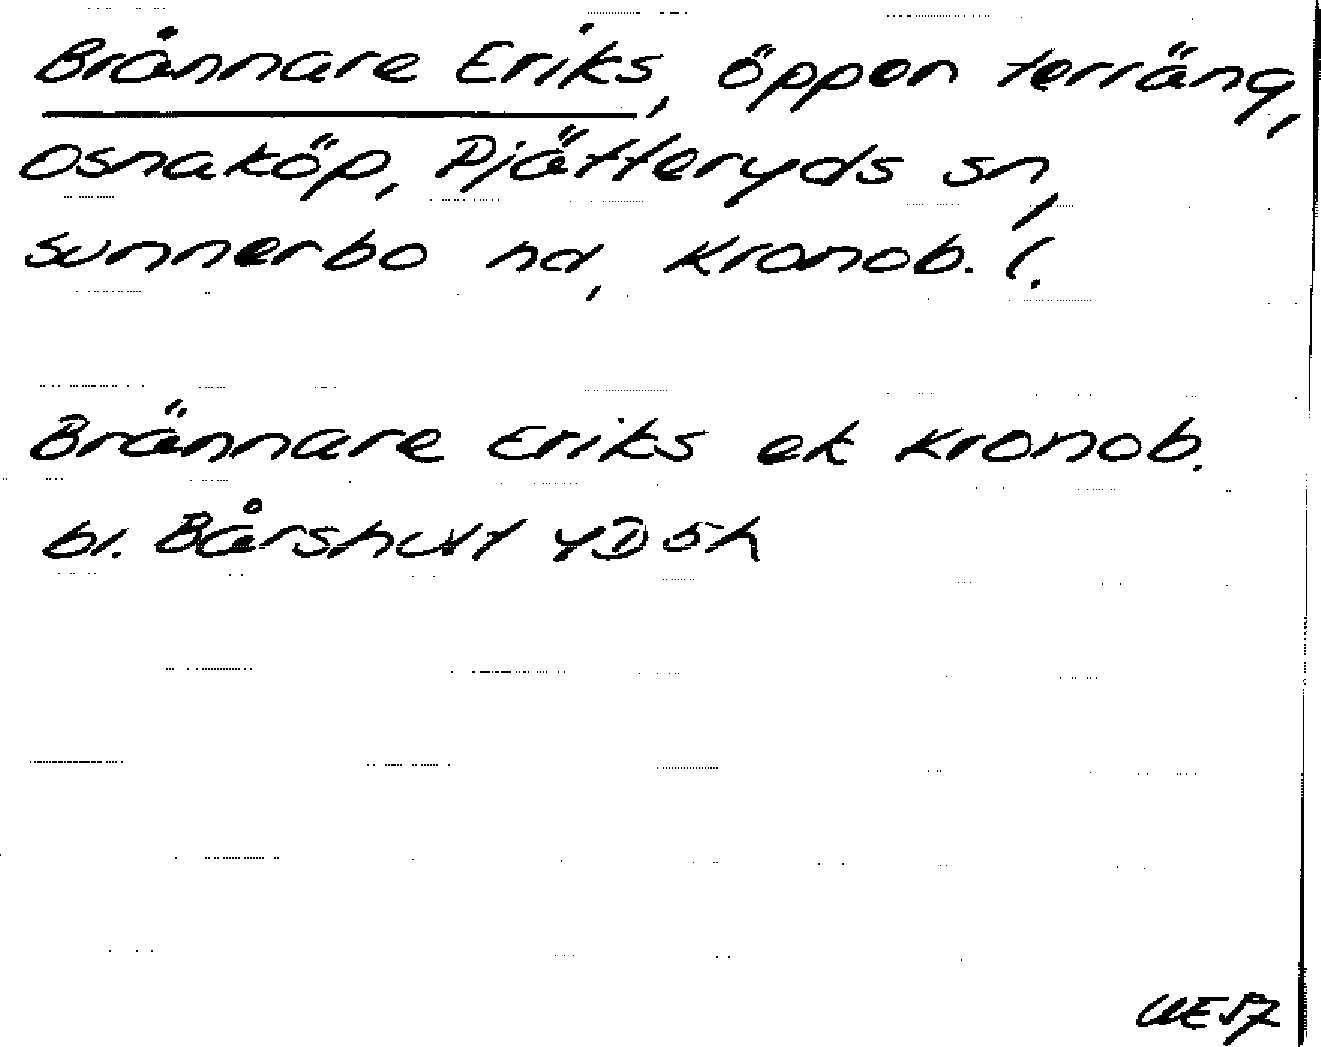 Brännare Eriks, öppen terräng,
Osnaköp, Pjätteryds sn,
Sunnerbo hd, Kronob. l.
Brännare Eriks ek Kronob.
bl. Bårshult 4D5h